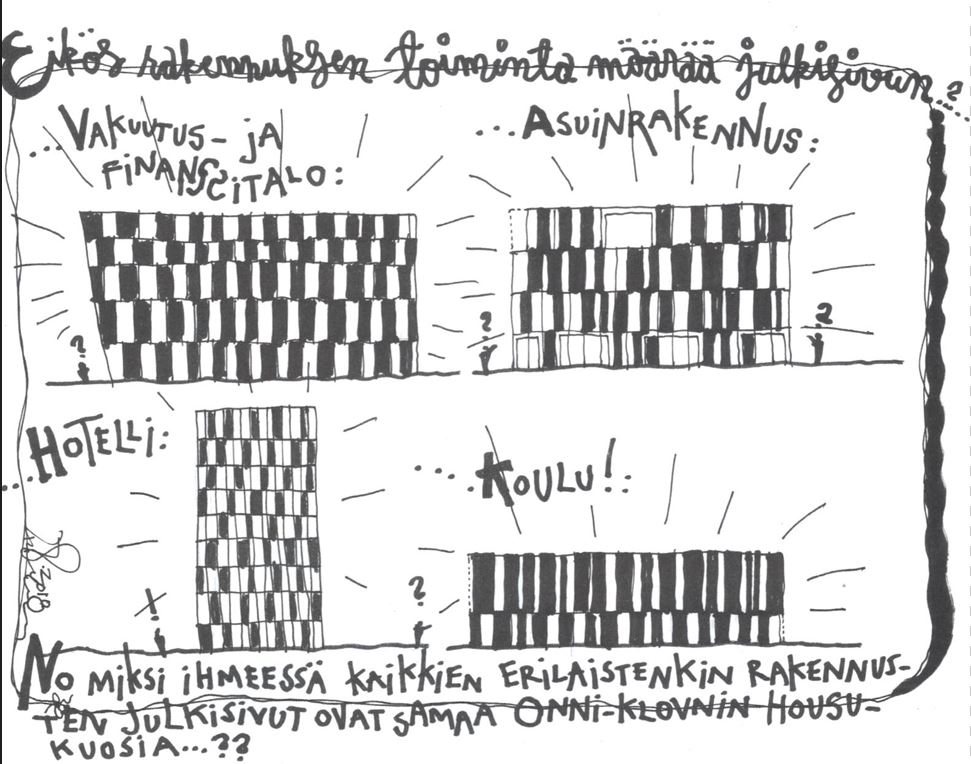 Eikös rakennuksen toiminta määrää julkisivun...?
...VAKUUTUS- JA
FINANSSITALO:
...ASUINRAKENNUS:
?
?
?
...HOTELLI:
....KOULU!:
?
2018
NO MIKSI IHMEESSÄ KAIKKIEN ERILAISTENKIN RAKENNUS-
TEN JULKISIVUT OVAT SAMAA ONNI-KLOVNIN HOUSU-
KUOSIA...??